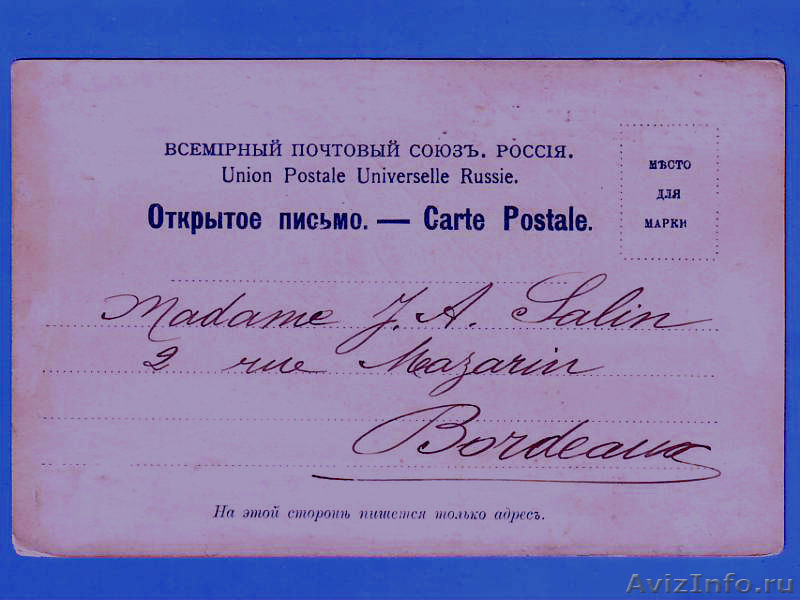 ВСЕМІРНЫЙ ПОЧТОВЫЙ СОЮЗЪ. РОССІЯ.
Union Postale Universelle Russie.
Открытое письмо. — Carte Postale.
МѢСТО
ДЛЯ
МАРКИ
Madame J. A. Salin
2 rue Mazarin
Bordeaux
На этой сторонѣ пишется только адресъ.
AvizInfo.ru